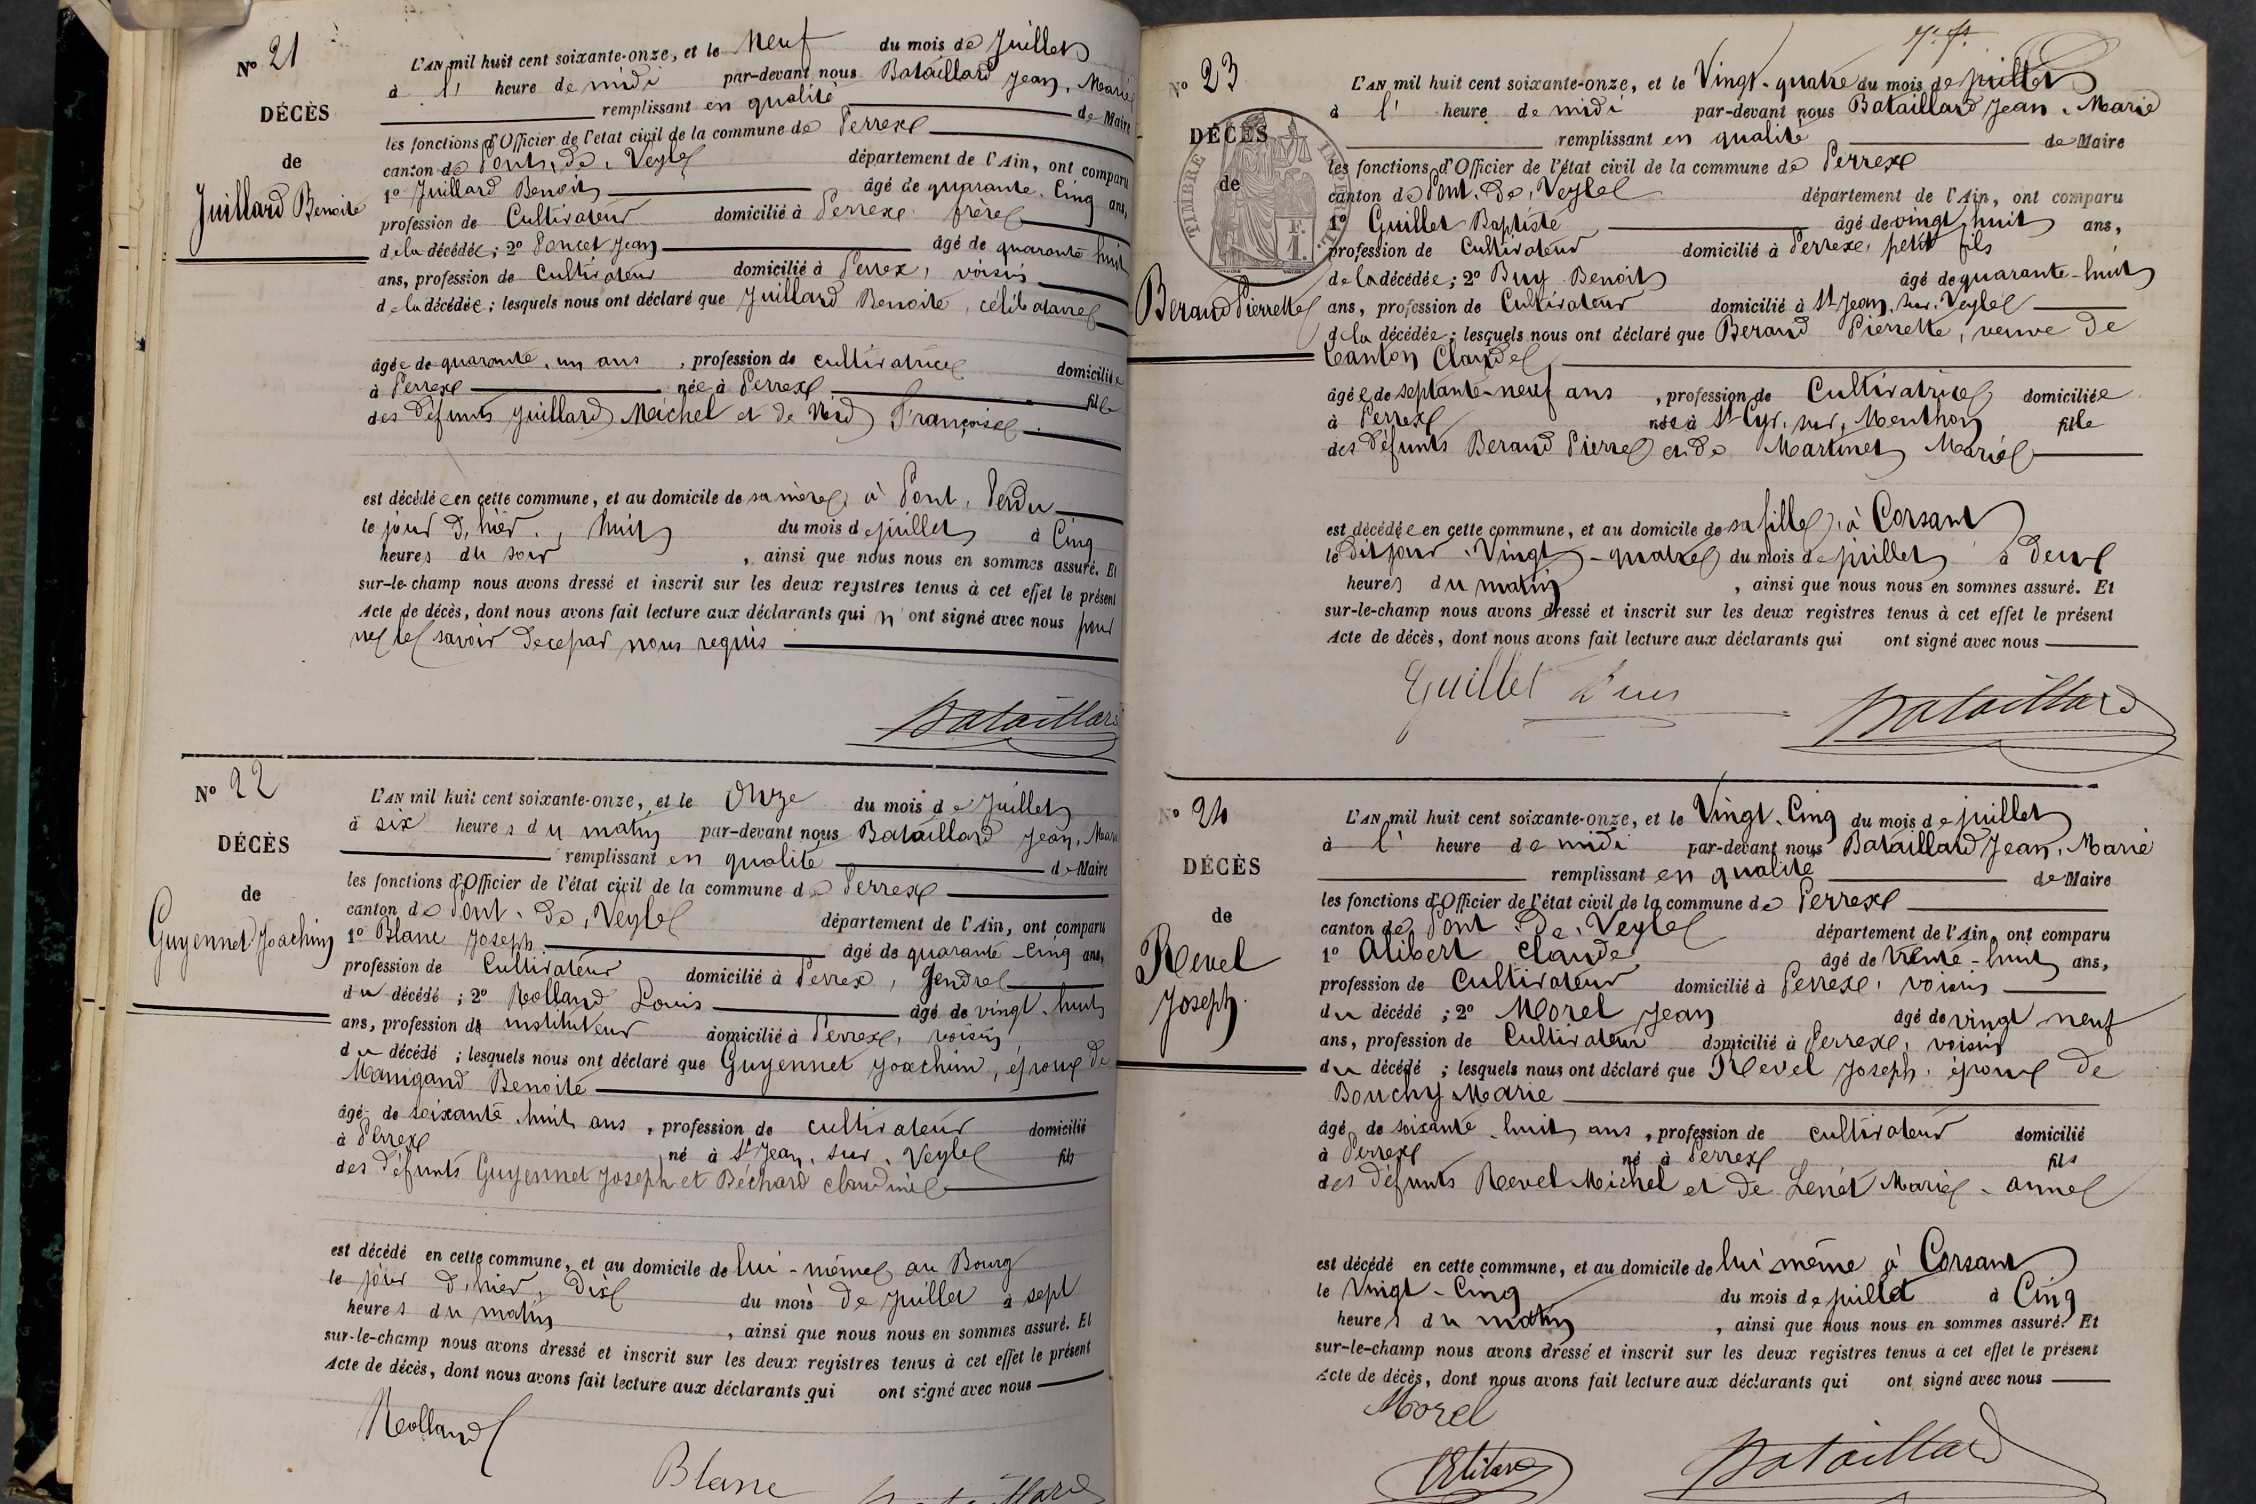 No 21
DÉCÈS
de
Juillard Benoite
L'AN mil huit cent soixante-onze, et le Neuf du mois de Juillet
à l' heure de midi par-devant nous Bataillard Jean, Marie
remplissant en qualité de Maire
les fonctions d'Officier de l'état civil de la commune de Perrex
canton de Pont, de, Veyle département de l'Ain, ont comparu
1o Juillard Benoit âgé de quarante-Cinq ans,
profession de Cultivateur domicilié à Perrex, frère
de la décédée; 2o Poncet Jean âgé de quarante huit
ans, profession de Cultivateur domicilié à Perrex, voisin
de la décédée; lesquels nous ont déclaré que Juillard Benoite, célibataire
âgée de quarante, un ans, profession de cultivatrice domiciliée
à Perrex née à Perrex fille
des défunts Juillard Michel et de Françoise
est décédée en cette commune, et au domicile de sa mère, à Pont, Perdu
le jour d'hier, huit du mois de juillet à Cinq
heures du soir, ainsi que nous nous en sommes assuré. Et
sur-le-champ nous avons dressé et inscrit sur les deux registres tenus à cet effet le présent
Acte de décès, dont nous avons fait lecture aux déclarants qui n'ont signé avec nous pour
ne le savoir de ce par nous requis
Bataillard
No 22
DÉCÈS
de
Guyennet Joachim
L'AN mil huit cent soixante-onze, et le Onze du mois de Juillet
à six heures du matin par-devant nous Bataillard Jean, Marie
remplissant en qualité de Maire
les fonctions d'Officier de l'état civil de la commune de Perrex
canton de Pont, de, Veyle département de l'Ain, ont comparu
1o Blanc Joseph âgé de quarante-Cinq ans,
profession de Cultivateur domicilié à Perrex, Gendre
du décédé; 2o Rolland Louis âgé de vingt-huit
ans, profession de instituteur domicilié à Perrex, voisin
du décédé; lesquels nous ont déclaré que Guyennet Joachim, époux de
Manigand Benoite
âgé de soixante-huit ans, profession de cultivateur domicilié
à Perrex né à St Jean, sur, Veyle fils
des défunts Guyennet Joseph et Béchard claudine
est décédé en cette commune, et au domicile de lui-même au Bourg
le jour d'hier, dix du mois de Juillet à sept
heures du matin, ainsi que nous nous en sommes assuré. Et
sur-le-champ nous avons dressé et inscrit sur les deux registres tenus à cet effet le présent
Acte de décès, dont nous avons fait lecture aux déclarants qui ont signé avec nous
Rolland
Blanc
Bataillard
No 23
DÉCÈS
de
TIMBRE IMPERIAL
F.
1.
Berand Pierrette
L'AN mil huit cent soixante-onze, et le Vingt-quatre du mois de juillet
à l' heure de midi par-devant nous Bataillard Jean, Marie
remplissant en qualité de Maire
les fonctions d'Officier de l'état civil de la commune de Perrex
canton de Pont, de, Veyle département de l'Ain, ont comparu
1o Guillet Baptiste âgé de vingt huit ans,
profession de Cultivateur domicilié à Perrex, petit fils
de la décédée; 2o Buy Benoit âgé de quarante-huit
ans, profession de Cultivateur domicilié à St Jean, sur, Veyle
de la décédée; lesquels nous ont déclaré que Berand Pierrette, veuve de
Canton Claude
âgée de septante-neuf ans, profession de Cultivatrice domiciliée
à Perrex née à St Cyr, sur, Menthon fille
des défunts Berand Pierre et de Martinet Marie
est décédée en cette commune, et au domicile de sa fille, à Corsant
le dit jour, Vingt-quatre du mois de juillet à deux
heures du matin, ainsi que nous nous en sommes assuré. Et
sur-le-champ nous avons dressé et inscrit sur les deux registres tenus à cet effet le présent
Acte de décès, dont nous avons fait lecture aux déclarants qui ont signé avec nous
Guillet
Bataillard
No 24
DÉCÈS
de
Revel
Joseph.
L'AN mil huit cent soixante-onze, et le Vingt-Cinq du mois de juillet
à l' heure de midi par-devant nous Bataillard Jean, Marie
remplissant en qualité de Maire
les fonctions d'Officier de l'état civil de la commune de Perrex
canton de Pont, De, Veyle département de l'Ain, ont comparu
1o Alibert Claude âgé de trente-huit ans,
profession de Cultivateur domicilié à Perrex, voisin
du décédé; 2o Morel Jean âgé de vingt neuf
ans, profession de Cultivateur domicilié à Perrex, voisin
du décédé; lesquels nous ont déclaré que Revel Joseph, époux de
Bouchy Marie
âgé de soixante-huit ans, profession de cultivateur domicilié
à Perrex né à Perrex fils
des défunts Revel Michel et de Marie-anne
est décédé en cette commune, et au domicile de lui même à Corsant
le Vingt-Cinq du mois de juillet à Cinq
heures du matin, ainsi que nous nous en sommes assuré. Et
sur-le-champ nous avons dressé et inscrit sur les deux registres tenus à cet effet le présent
Acte de décès, dont nous avons fait lecture aux déclarants qui ont signé avec nous
Morel
Bataillard